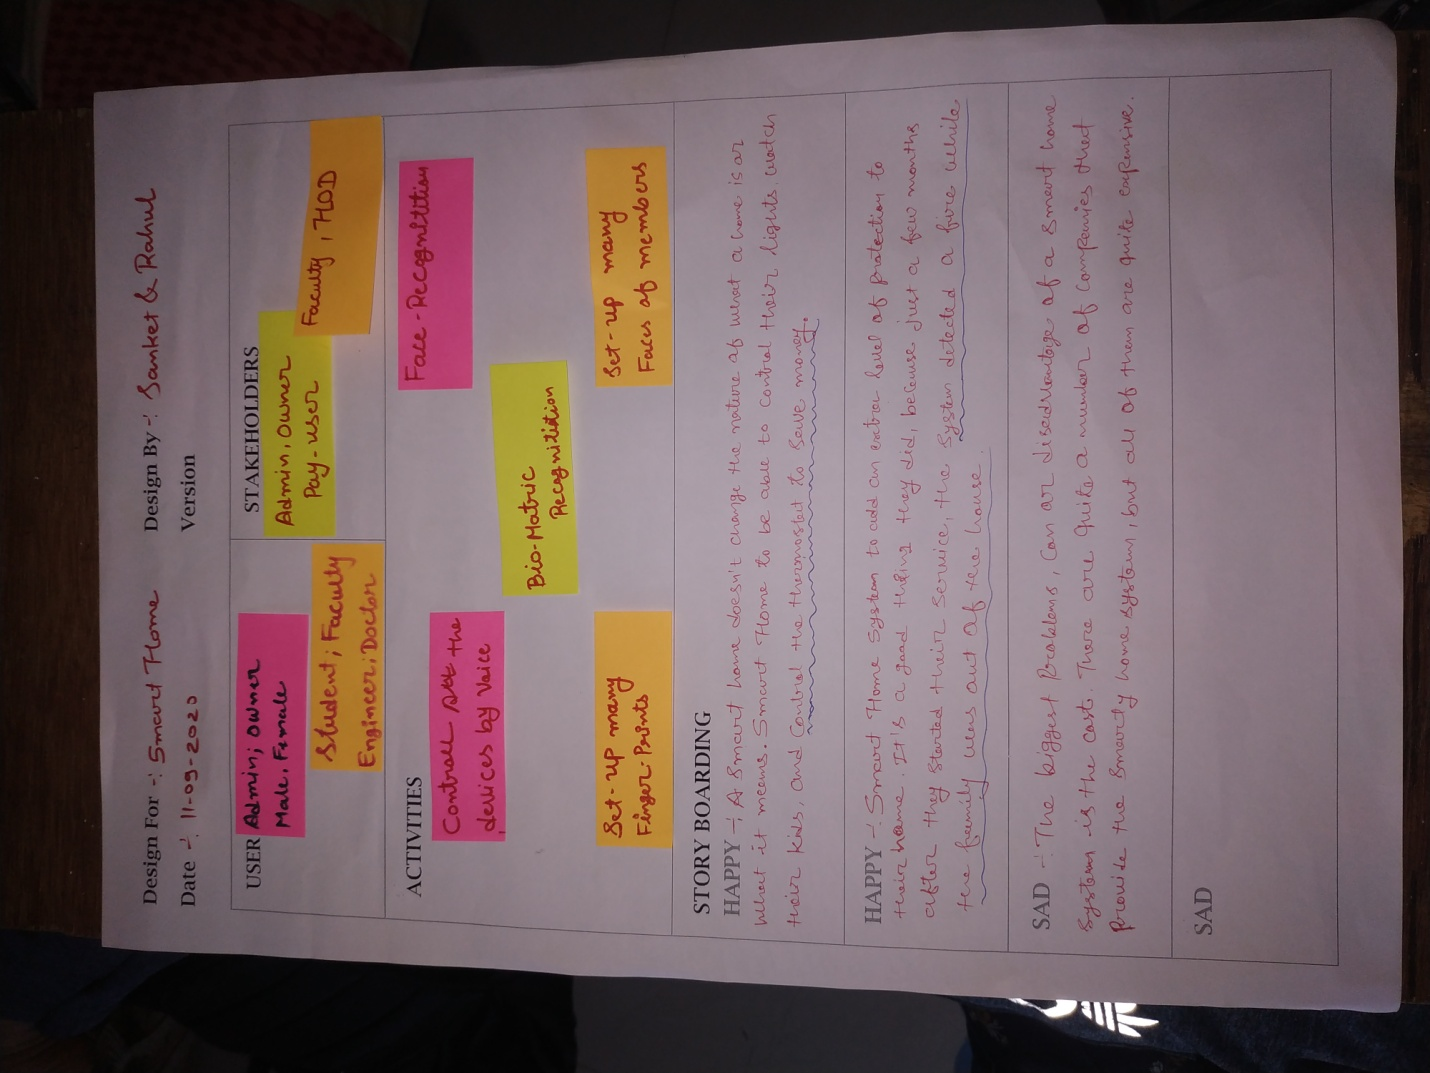 Design For -: Smart Home Design By -: Sanket & Rahul
Date -: 11-09-2020 Version
USER
Admin; owner
Male, Female
Student; Faculty
Engineer; Doctor
STAKEHOLDERS
Admin, Owner
Pay-user
Faculty, HOD
ACTIVITIES
Control the
devices by Voice
Face-Recognitition
Bio-Matric
Recognitition
Set-up many
Finger-Prints
Set-up many
Faces of members
STORY BOARDING
HAPPY -: A Smart home doesn't change the nature of what a home is or
what it means. Smart Home to be able to control their lights, watch
their kids, and control the thermostat to save money.
HAPPY -: Smart Home System to add an extra level of protection to
their home. It's a good thing they did, because just a few months
after they started their service, the system detected a fire while
the family was out of the house.
SAD -: The biggest Problems, Con or disadvantage of a smart home
system is the cost. There are quite a number of companies that
provide the Smartly home system, but all of them are quite expensive.
SAD